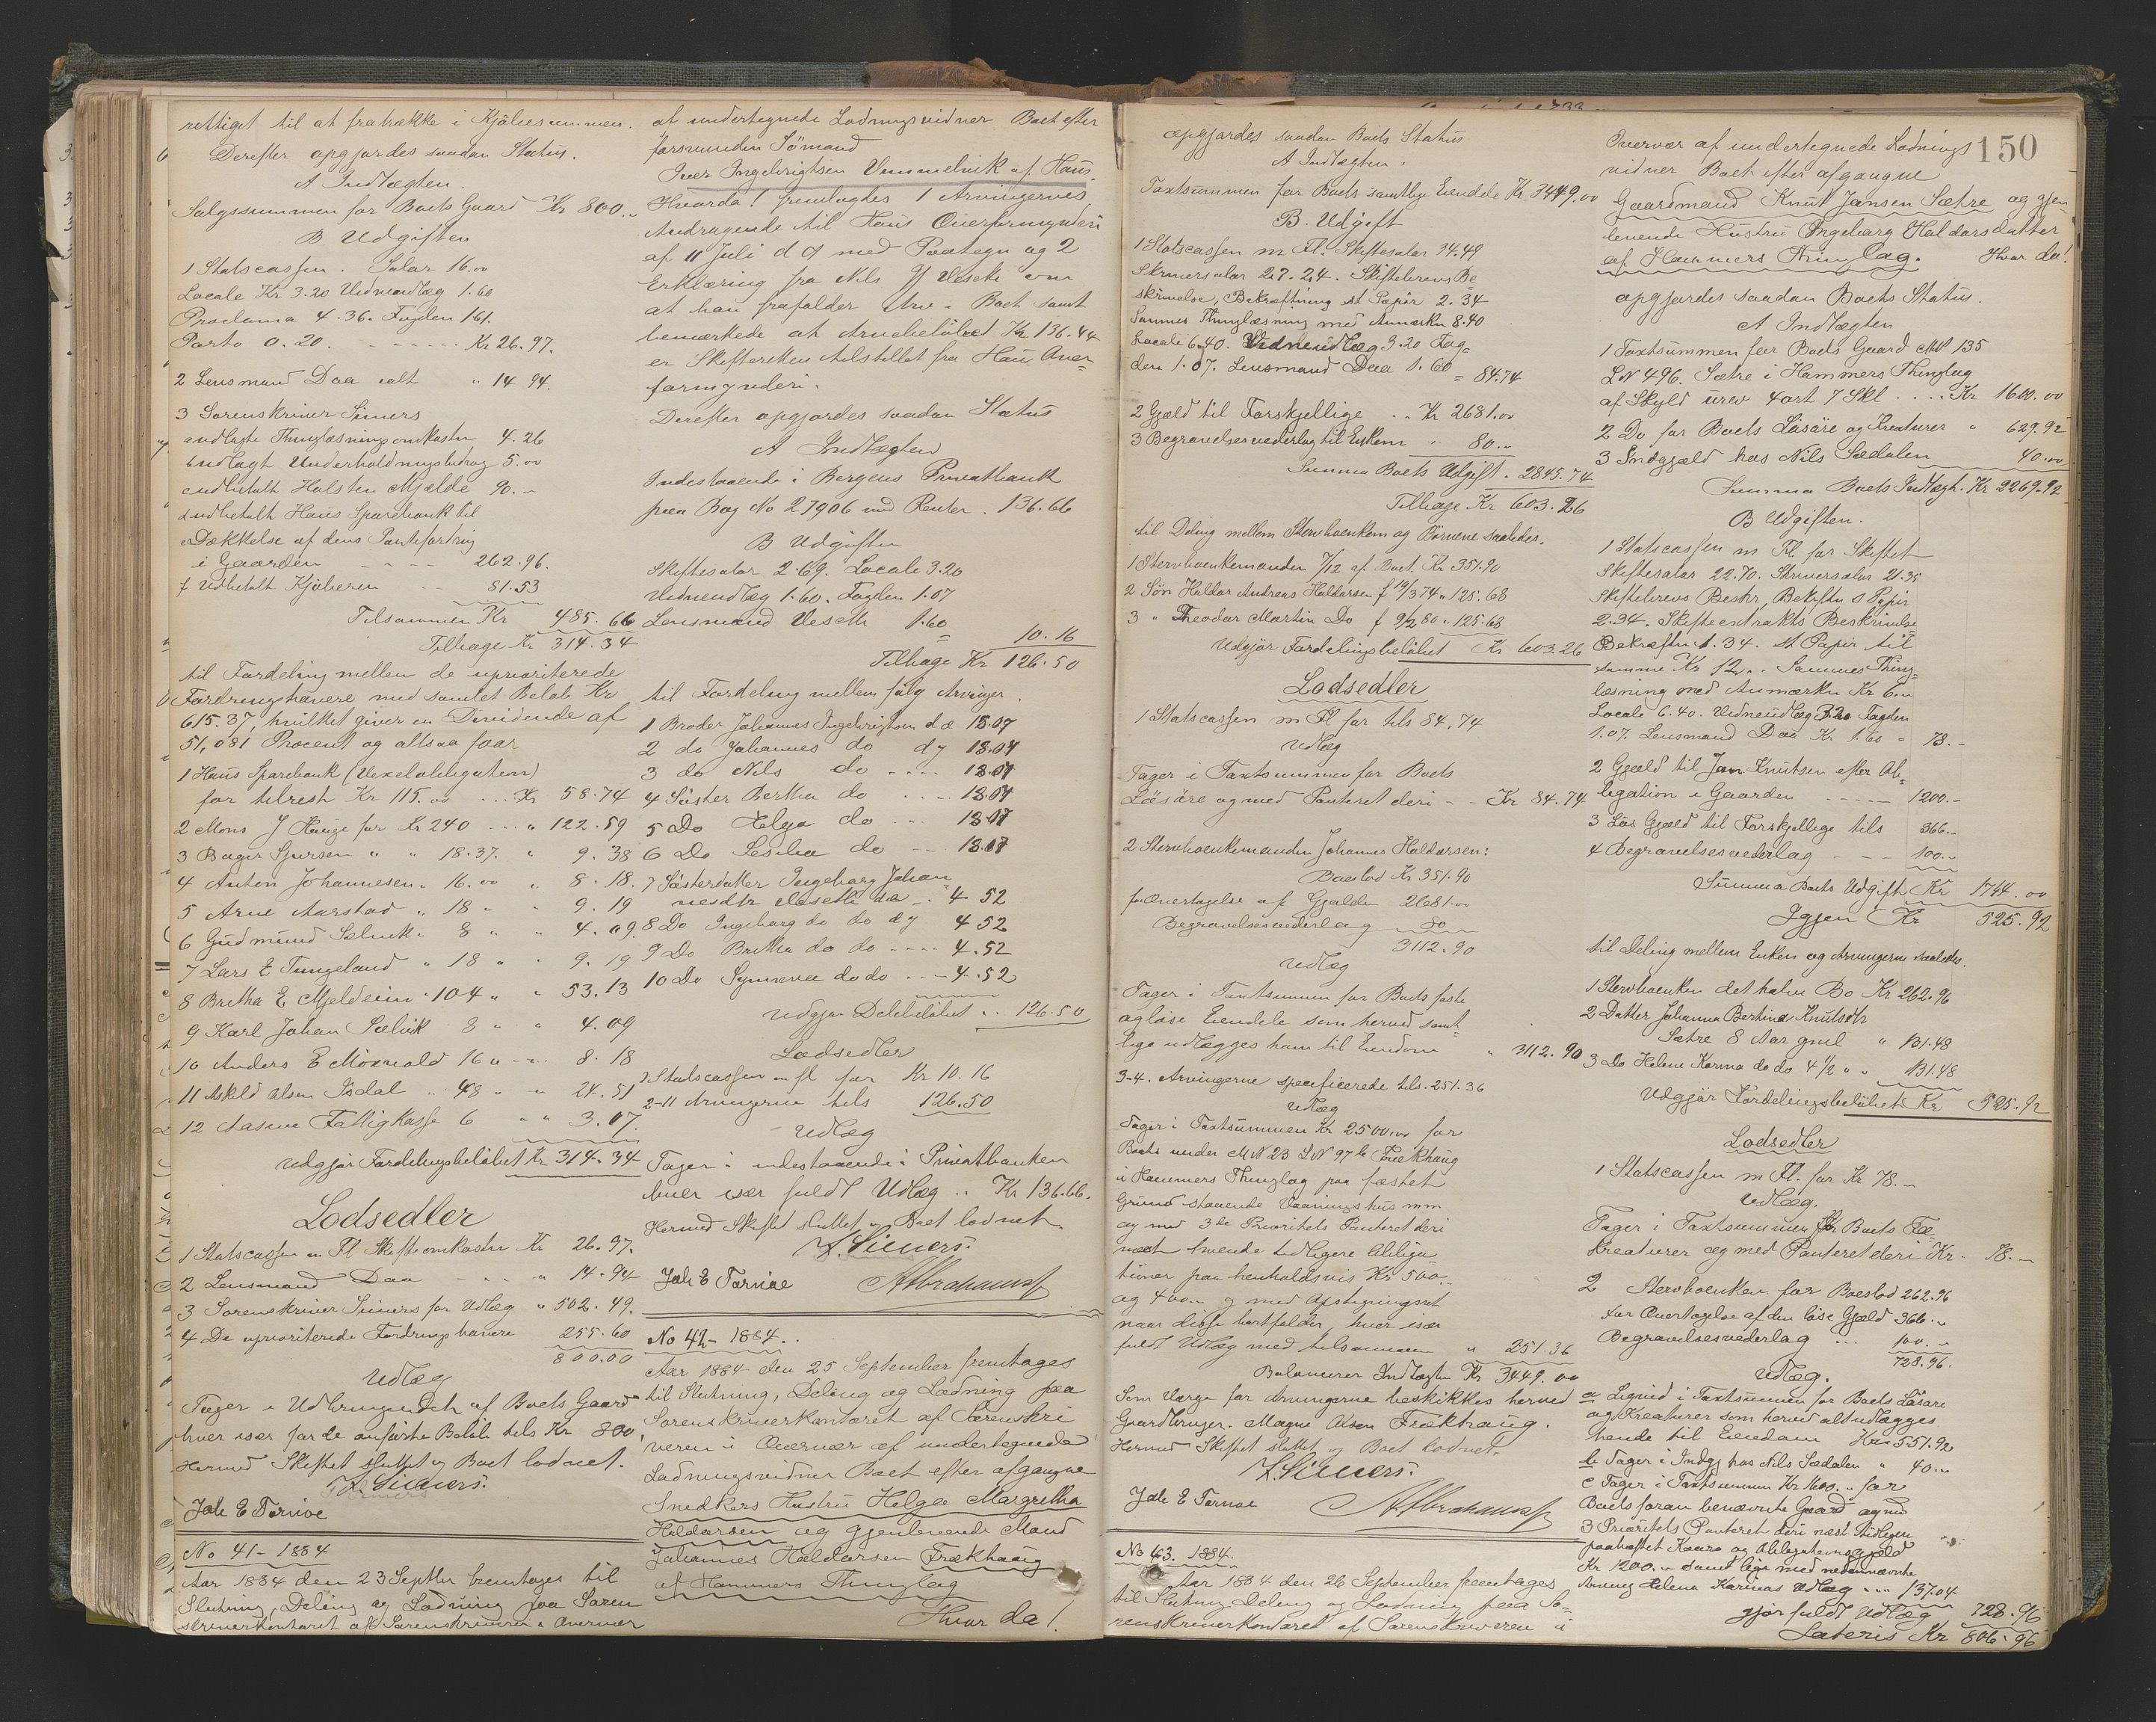 rettiget til at fratrække i Kjøbesummen.
Derefter opgjordes saadan Status.
A Indtægten.
Salgssummen for Boets Gaard Kr 800.„
B Udgiften
1 Statscassen. Salar 16.00
Locale Kr 3.20 Vidneudlæg 1.60
Proclama 4.36. Fogden 1.61.
Porto 0.20. - - - - - - Kr 26.97.
2 Lensmand Daa ialt „ 14.94.
3 Sorenskriver Sivers
a udlagte Thinglæsningsomkostn 4.26
b udlagt Underholdningsbidrag 5.00
c udbetalt Halsten Mjelde 90.-
d udbetalt Haus Sparebank til
Dækkelse af dens Pantefordring
i Gaarden - - - - 262.96.
f Udbetalt Kjøberen - - 81.53
Tilsammen Kr 485.66
Tilbage Kr 314.34
til Fordeling mellem de uprioriterede
Fordringshavere med samlet Beløb Kr
615.37, hvilket giver en Dividende af
51,081 Procent og altsaa faar
1 Haus Sparebank (Vexelobligation)
for tilrest Kr 115.00 ... Kr 58.74
2 Mons J Hauge for Kr 240 ... „ 122.59
3 Bager Sjursen „ „ 18.37. „ 9.38
4 Anton Johannesen „ 16.00 „ 8.18.
5 Arne Aarstad „ 18 - „ 9.19
6 Gudmund Selvik „ 8 „ „ 4.09
7 Lars E Tungeland „ 18 „ „ 9.19
8 Britha E Mjeldeim „ 104 „ „ 53.13
9 Karl Johan Sælvik 8 „ „ 4.09
10 Anders E Moxvold 16 „ - „ 8.18
11 Askild Olsen Isdal „ 48 „ „ 24.51
12 Aasene Fattigkasse 6 „ „ 3.07.
Udgjør Fordelingsbeløbet Kr 314.34
Lodsedler
1 Statscassen m Fl Skifteomkostn Kr 26.97.
2 Lensmand Daa - - - „ 14.94
3 Sorenskriver Sivers for Udlæg „ 502.49.
4 De uprioriterede Fordringshavere 255.60
800.00
Udlæg
Tager i Udbringendet af Boets Gaard
hver især for de anførte Beløb tils Kr 800,
Hermed Skiftet sluttet og Boet lodnet.
Sivers.
Joh E Fornæe
No 41 - 1884
Aar 1884 den 23 Septbr fremtoges til
Slutning, Deling og Lodning paa Soren
skriverkontoret af Sorenskriveren i Overvær
af undertegnede Lodningsvidner Boet efter
forsvunden Sömand
Iver Ingebrigtsen Vemmelvik af Haus.
Hvorda! fremlagdes 1 Arvingernes
Andragende til Haus Overformynderi
af 11 Juli d A med Paategn og 2
Erklæring fra Nils J Veseth om
at han frafalder Arv i Boet samt
bemærkede at Arvebeløbet Kr 136.44
er Skifteretten tilstillet fra Haus Over=
formynderi.
Derefter opgjordes saadan Status
A Indtægten
Indestaaende i Bergens Privatbank
paa Bog No 27906 med Renter. 136.66
B Udgiften
Skiftesalar 2.69. Locale 3.20
Vidneudlæg 1.60. Fogden 1.07
Lensmand Veseth 1.60 10.16
Tilbage Kr 126.50
til Fordeling mellem følg Arvinger.
1 Broder Johannes Ingebrigtsen d æ 18.07
2 do Johannes do d y 18.07
3 do Nils do - - - - 18.07
4 Søster Bertha do - - - 18.07
5 Do Helga do - - - 18.07
6 Do Sesilia do - - - 18.07
7 Søsterdatter Ingeborg Johan
nesdtr Veseth d æ - . 4 52
8 Do Ingeborg do do d y 4 52
9 Do Britha do do - - - - 4.52
10 Do Synneva do do - - - 4.52
Udgjør Delebeløbet .. 126.50
Lodsedler
1 Statscassen m fl for Kr 10.16
2-11 Arvingerne tils 126.50
Udlæg
Tager i indestaaende i Privatbanken
hver især fuldt Udlæg .. Kr 136.66.
Hermed Skiftet sluttet og Boet lodnet.
Sivers.
Joh E Fornæe Abrahams
No 42 - 1884..
Aar 1884 den 25 September fremtoges
til Slutning, Deling og Lodning paa
Sorenskriverkontoret af Sorenskri
veren i Overvær af undertegnede
Lodningsvidner Boet efter afgangne
Snedkers Hustru Helga Margretha
Haldorsen og gjenlevende Mand
Johannes Haldorsen Frækhaug
af Hammers Thinglag
Hvor da!
opgjordes saadan Boets Status
A Indtægten.
Taxtsummen for Boets samtlige Eiendele Kr 3449.00
B. Udgift
1 Statscassen m Fl. Skiftesalar 34.49
Skriversalar 27.24. Skiftebrevs Be
skrivelse, Bekræftning st Papir 2.34
Sammes Thinglæsning med Anmærkn 8.40
Locale 6.40. Vidneudlæg 3.20 Fog=
den 1.07. Lensmand Daa 1.60 = 84.74
2 Gjæld til Forskjellige .. Kr 2681.00
3 Begravelsesvederlag til Enkem „ 80.-
Summa Boets Udgift. 2845.74
Tilbage Kr 603.26
til Deling mellem Stervboenkem og Börnene saaledes.
1 Stervboenkemanden 7/12 af Boet. Kr 351.90
2 Sön Haldor Andreas Haldorsen f 19/3 74 „ 125.68
3 „ Theodor Martin Do f 9/2 80 „ 125.68
Udgjør Fordelingsbeløbet Kr 603.26
Lodsedler
1 Statscassen m Fl for tils 84.74
Udlæg
Tager i Taxtsummen for Boets
Løsøre og med Panteret deri - - Kr 84.74
2 Stervboenkemanden Johannes Haldorsen:
Boeslod Kr 351.90
for Overtagelse af Gjælden 2681.00
Begravelsesvederlag 80
3112.90
Udlæg
Tager i Taxtsummen for Boets faste
og løse Eiendele som herved samt=
lige udlægges ham til Eiendom „ 3112.90
3-4. Arvingerne specificerede tils. 251.36
Udlæg
Tager i Taxtsummen Kr 2500.00 for
Boets under M N 23 L N 97 b Frækhaug
i Hammers Thinglag paa fæstet
Grund staaende Vaaningshus mm
og med 3de Prioritets Panteret deri
næst hvende tidligere Obliga
tioner paa henholdsvis Kr 500.-
og 400.- og med Opstigningsret
naar disse bortfalder, hver især
fuldt Udlæg med tilsammen „ 251.36
Balancerer Indtægten Kr 3449.00
Som Værge for Arvingerne beskikkes herved
Gaardbruger Magne Olsen Frækhaug.
Hermed Skiftet sluttet og Boet lodnet.
Sivers.
Joh E Fornæe Abrahams
No 43. 1884.
Aar 1884 den 26 September fremtoges
til Slutning Deling og Lodning paa So=
renskriverkontoret af Sorenskriveren i
150
Overvær af undertegnede Lodnings
vidner Boet efter afgangne
Gaardmand Knut Jansen Sætre og gjen
levende Hustru Ingeborg Haldorsdatter
af Hammers Thinglag. Hvor da!
opgjordes saadan Boets Status.
A Indtægten
1 Taxtsummen for Boets Gaard M N 135
L N 496. Sætre i Hammers Thinglag
af Skyld urev 4 ort 7 Skl .... Kr 1600.00
2 Do for Boets Løsøre og Kreaturer „ 629.92
3 Indgjæld hos Nils Sædalen 40.00
Summa Boets Indtægt. Kr 2269.92
B Udgiften.
1 Statscassen m Fl for Skiftet
Skiftesalar 22.70. Skriversalar 21.35
Skiftebrevs Beskr, Bekræftn st Papir
2.34. Skifteextrakts Beskrivelse
Bekræftn 1.34. st Papir til
samme Kr 12 „. Sammes Thing=
læsning med Anmærkn Kr 6.„
Locale 6.40. Vidneudlæg 3.20 Fogden
1.07. Lensmand Daa Kr. 1.60 = 78.-
2 Gjæld til Jan Knutsen efter Ob=
ligation i Gaarden - - - - - 1200.-
3 Løs Gjæld til Forskjellige tils 366.-
4 Begravelsesvederlag - - - 100.-
Summa Boets Udgift Kr 1744.00
Igjen Kr 525.92
til Deling mellem Enken og Arvingerne saaledes.
1 Stervboenken det halve Bo Kr 262.96
2 Datter Johanna Bertina Knutsdtr
Sætre 8 Aar gml „ 131.48
3 Do Helene Karina do do 4 1/2 „ „ 131.48
Udgjør Fordelingsbeløbet Kr 525.92
Lodsedler
1 Statscassen m Fl. for Kr 78.-
Udlæg.
Tager i Taxtsummen for Boets Fæ
kreaturer og med Panteret deri Kr. 78.-
2 Stervboenken for Boeslod 262.96
for Overtagelse af den løse Gjæld 366.-
Begravelsesvederlag ... 100.-
728.96.
Udlæg.
a Liqvid i Taxtsummen for Boets Løsøre
og Kreaturer som herved alt udlægges
hende til Eiendom Kr 551.92
b Tager i Indgj hos Nils Sædalen „ 40.„
c Tager i Taxtsummen Kr 1600.„ for
Boets foran benævnte Gaard og med
3 Prioritets Panteret deri næst tidligere
paahæftet Kaara og Obligationsgjæld
Kr 1200.„ samt lige med nedennævnte
Arving Helena Karinas Udlæg „ „ 137.04
gjør fuldt Udlæg 728.96
Lateris Kr 806.96